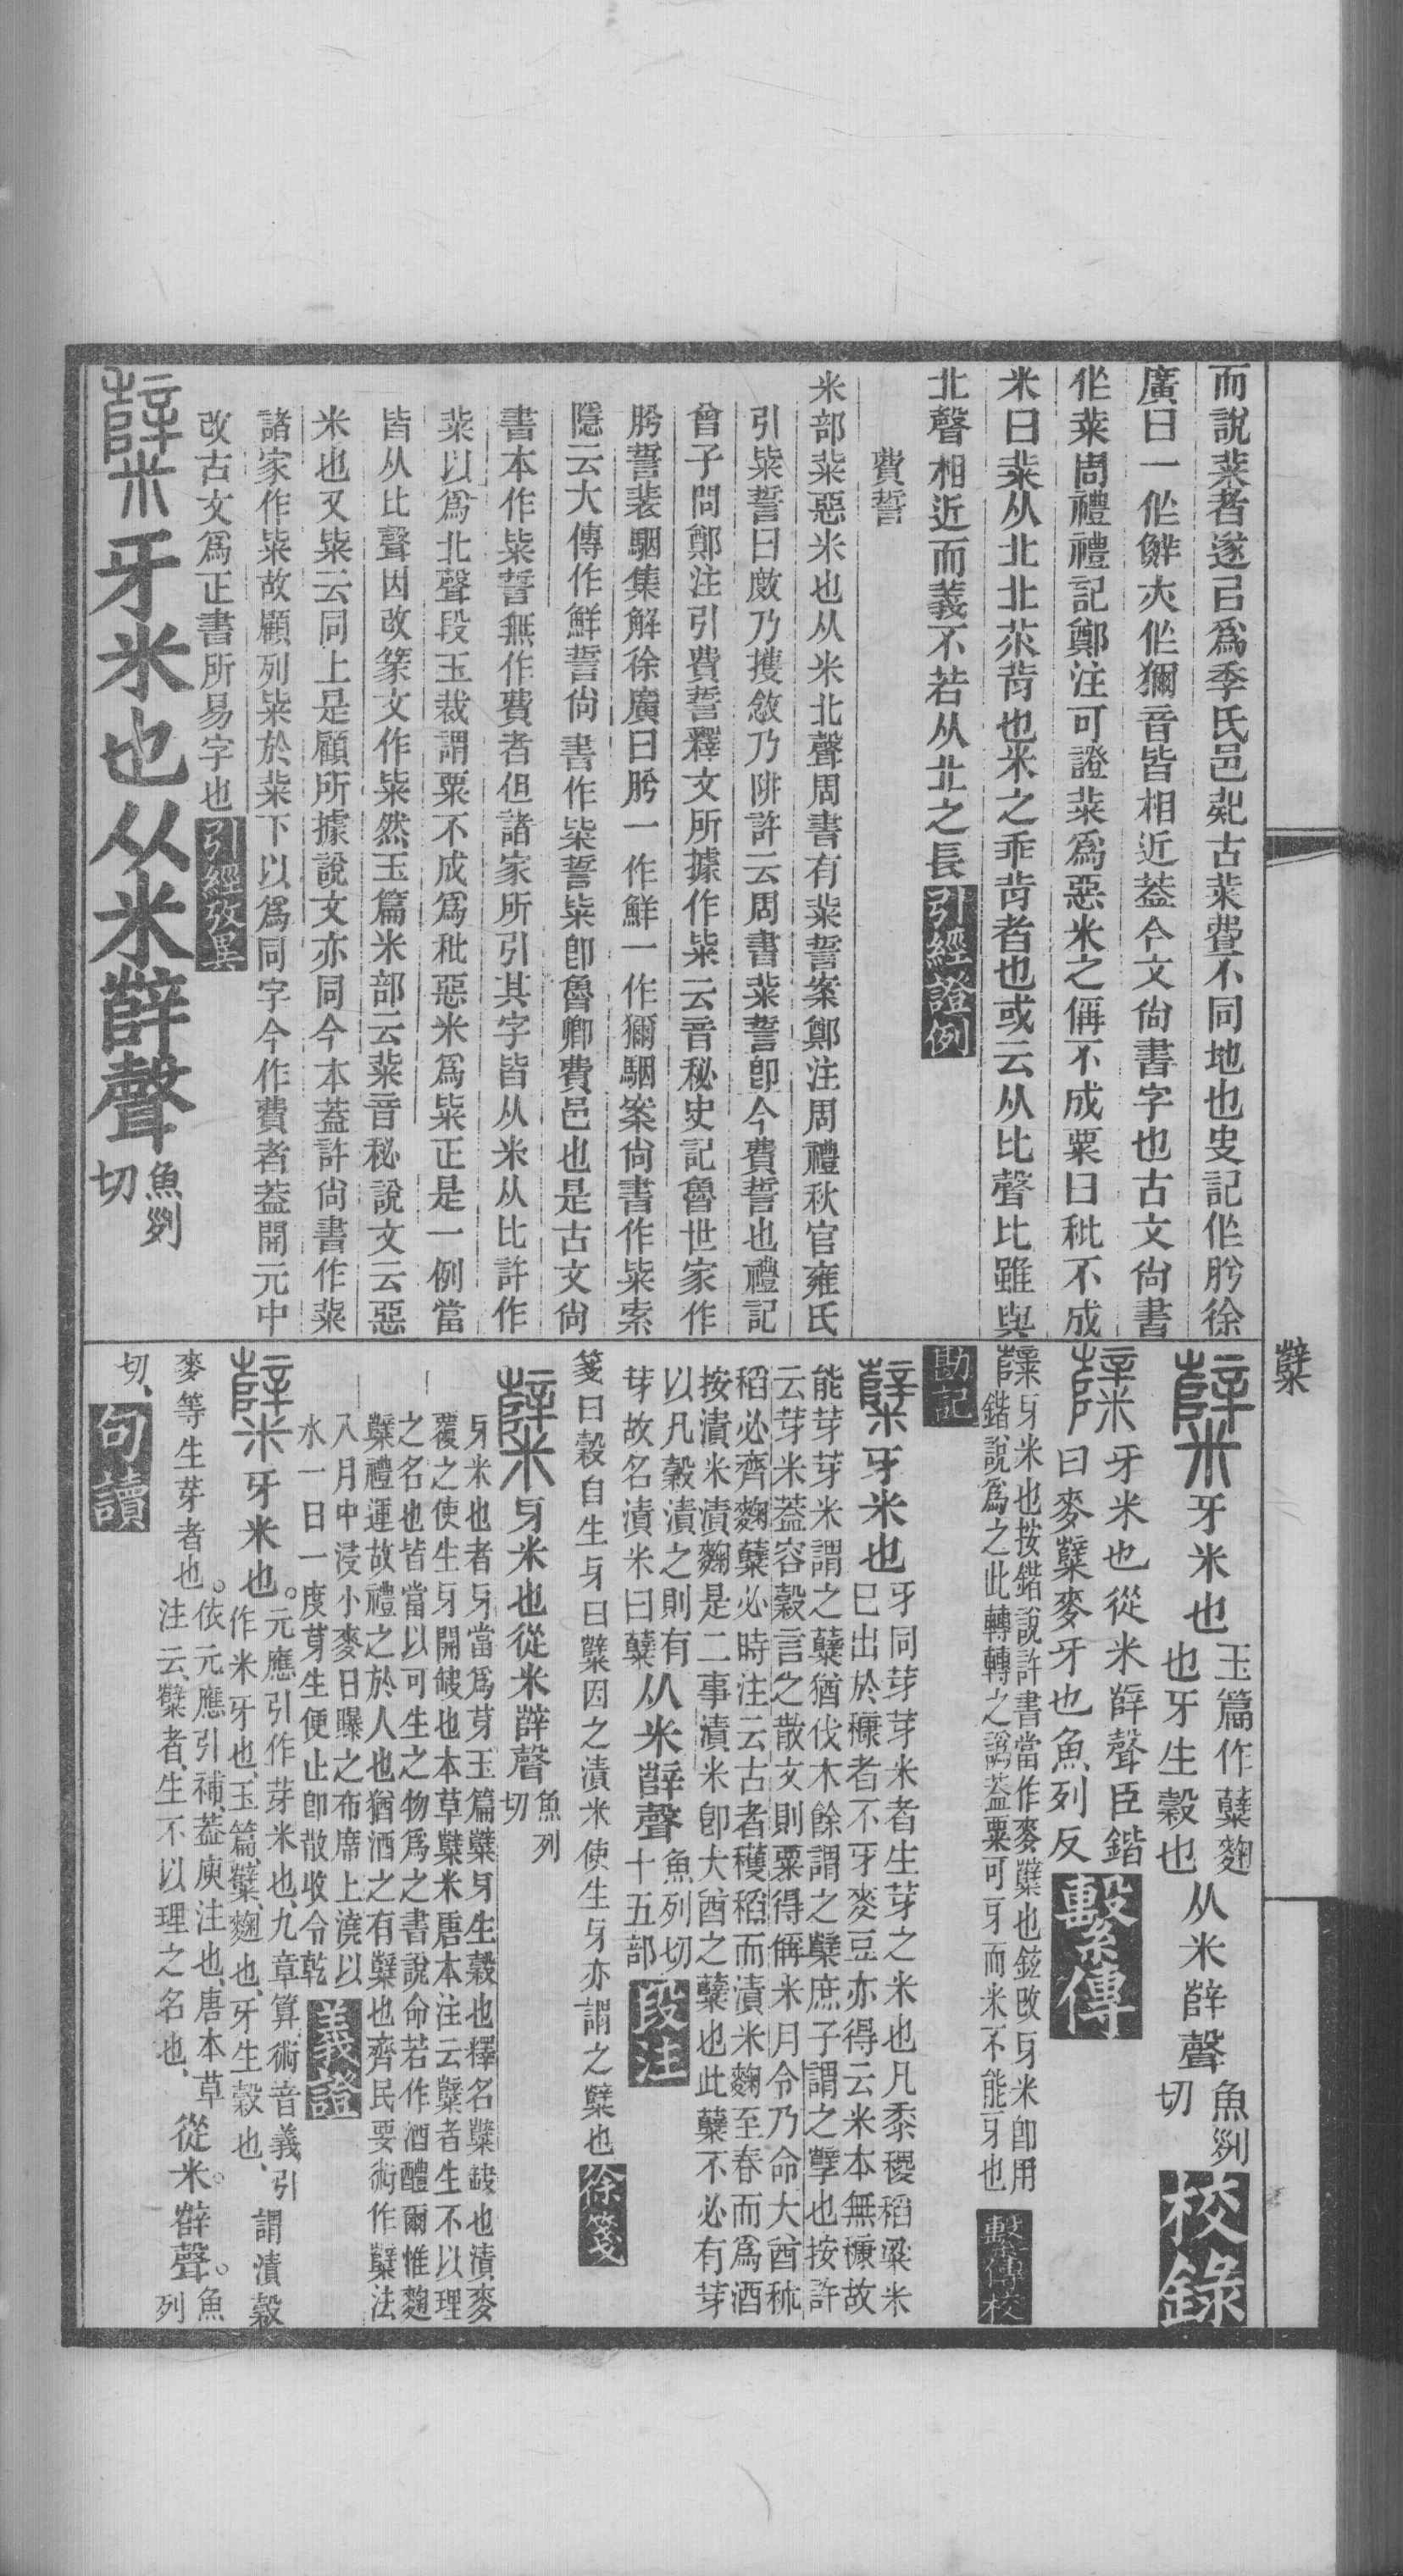 而說粊者遂㠯爲季氏邑矣古粊費不同地也史記作肸徐
廣曰一作鮮亦作獮音皆相近葢今文尙書字也古文尙書
作粊周禮禮記鄭注可證粊爲惡米之偁不成粟曰秕不成
米曰粊从北北芣背也米之乖背者也或云从比聲比雖與
北聲相近而義不若从北之長引經證例
費誓
米部粊惡米也从米北聲周書有粊誓案鄭注周禮秋官雍氏
引粊誓曰敿乃擭敜乃阱許云周書粊誓卽今費誓也禮記
曾子問鄭注引費誓釋文所據作粊云音秘史記魯世家作
肸誓裴駰集解徐廣曰肸一作鮮一作獮駰案尙書作粊索
隱云大傳作鮮誓尙書作粊誓粊卽魯卿費邑也是古文尙
書本作粊誓無作費者但諸家所引其字皆从米从比許作
粊以爲北聲段玉裁謂粟不成爲秕惡米爲粊正是一例當
皆从比聲因改篆文作粊然玉篇米部云粊音秘說文云惡
米也又粊云同上是顧所據說文亦同今本葢許尙書作粊
諸家作粊故顧列粊於粊下以爲同字今作費者葢開元中
改古文爲正書所易字也引經攷異
糱牙米也从米辥聲魚列切
糱
糱牙米也玉篇作糵麴也牙生穀也从米辥聲魚列切校錄
糱牙米也從米辥聲臣鍇曰麥糱麥牙也魚列反繫傳
糱牙米也按鍇說許書當作麥糱也鉉改牙米卽用鍇說爲之此轉轉之譌葢粟可牙而米不能牙也繫傳校
勘記
糱牙米也牙同芽芽米者生芽之米也凡黍稷稻粱米已出於穅者不牙麥豆亦得云米本無穅故
能芽芽米謂之糵猶伐木餘謂之櫱庶子謂之孼也按許云芽米葢容穀言之散文則粟得偁米月令乃命大酋秫
稻必齊麴糵必時注云古者穫稻而漬米麴至春而爲酒按漬米漬麴是二事漬米卽大酋之糵也此糵不必有芽
以凡穀漬之則有芽故名漬米曰糵从米辥聲魚列切十五部段注
箋曰穀自生牙曰糱因之漬米使生牙亦謂之糱也徐箋
糱牙米也從米辥聲魚列切
牙米也者牙當爲芽玉篇糱牙生穀也釋名糱缺也漬麥覆之使生牙開缺也本草糱米唐本注云糱者生不以理
之名也皆當以可生之物爲之書說命若作酒醴爾惟麴糱禮運故禮之於人也猶酒之有糱也齊民要術作糱法
八月中浸小麥日曝之布席上澆以水一日一度芽生便止卽散收令乾義證
糱牙米也。元應引作芽米也、九章算術音義引作米牙也、玉篇、糱、麴也、牙生穀也、謂漬穀
麥等生芽者也。依元應引補、葢庾注也、唐本草注云、糱者、生不以理之名也、從米。辥聲。魚列
切、句讀